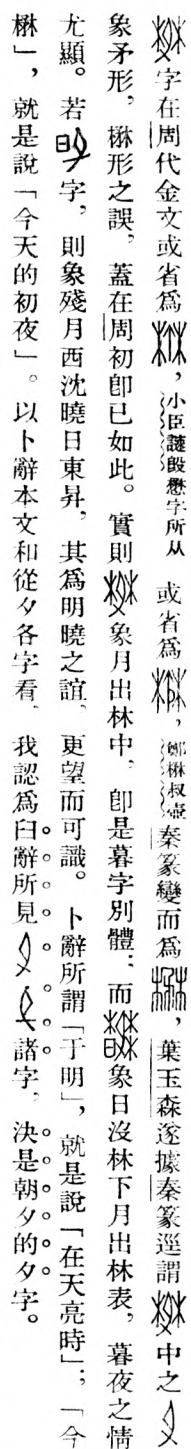 字在周代金文或省爲，小臣謎𣪘懋字所从 或省爲，鄭楙叔壺 秦篆變而爲，葉玉森遂據秦篆逕謂中之
象矛形，楙形之誤，蓋在周初卽已如此。實則象月出林中，卽是暮字別體；而象日沒林下月出林表，暮夜之情
尤顯。若字，則象殘月西沈曉日東昇，其爲明曉之誼，更望而可識。卜辭所謂「于明」，就是說「在天亮時」；「今
楙」，就是說「今天的初夜」。以卜辭本文和從夕各字看，我認爲臼辭所見諸字，決是朝夕的夕字。